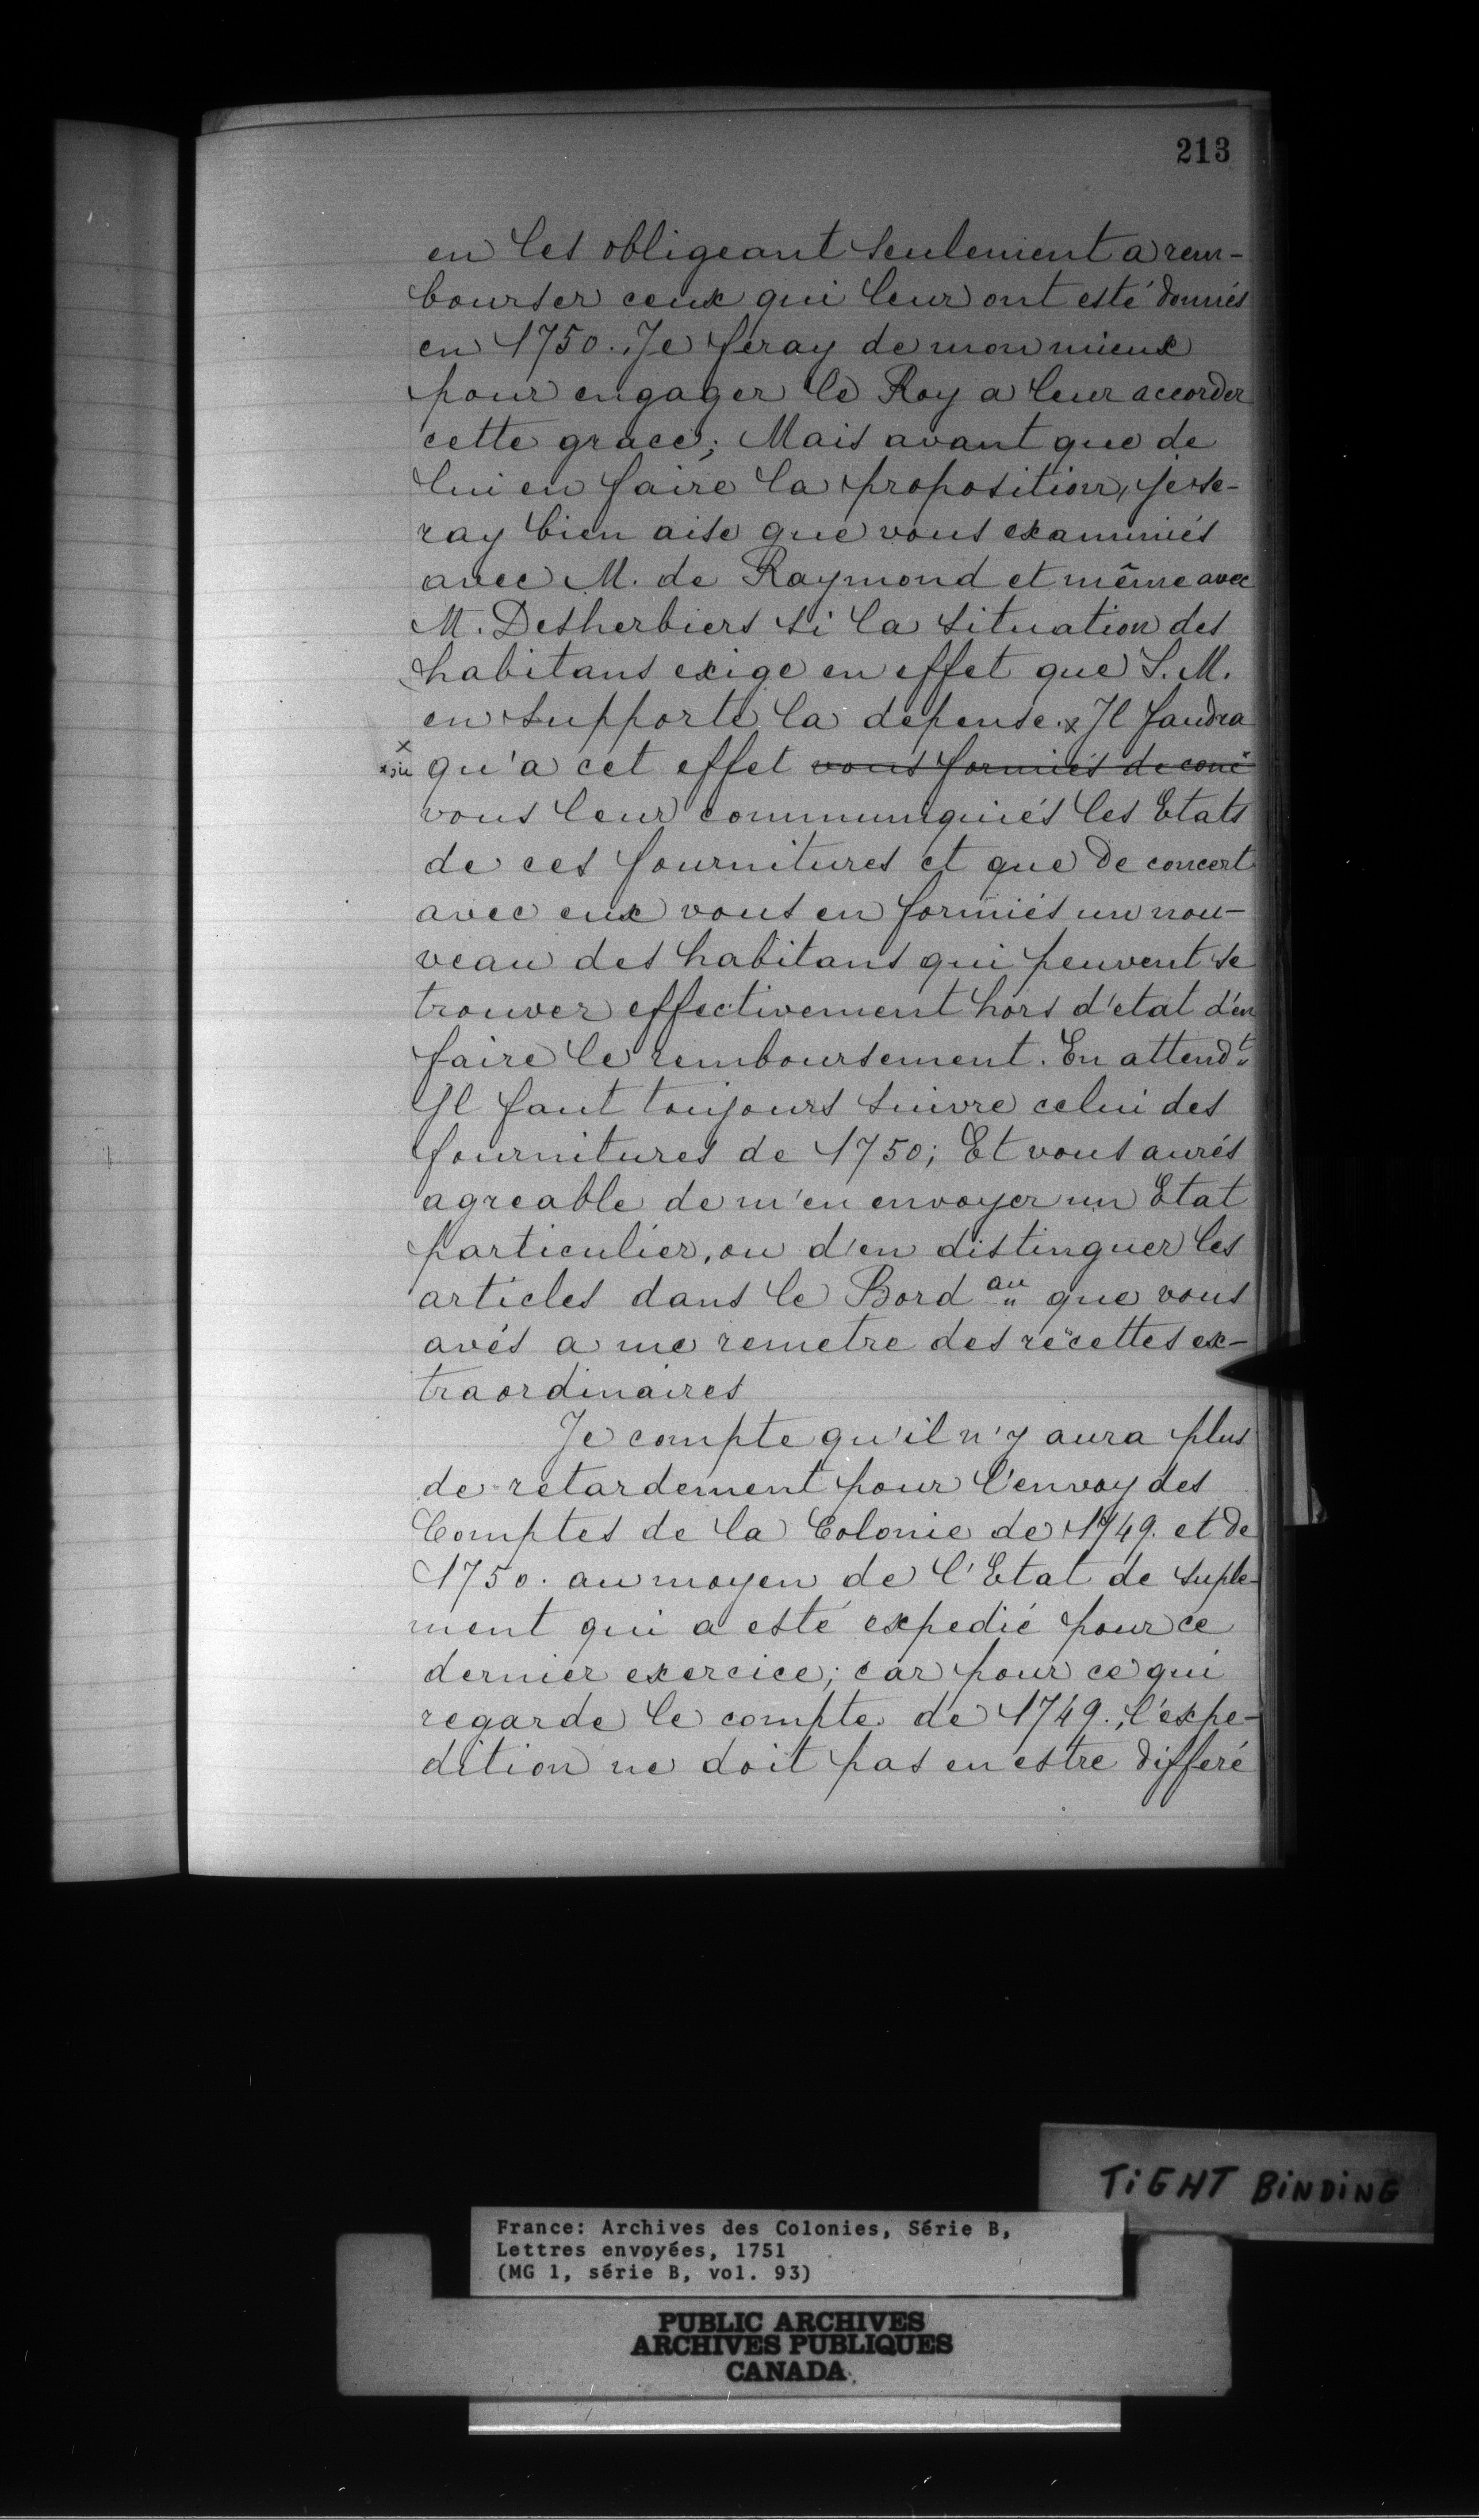 213
en les obligeant seulement a rem-
bourser ceux qui leur ont esté donnés
en 1750. Je feray de mon mieux
pour engager le Roy a leur accorder
cette grace; Mais avant que de
lui en faire la proposition, je se-
ray bien aise que vous examiniés
avec M. de Raymond et même avec
M. Desherbiers si la situation des
habitans exige en effet que S. M.
en supporte la depense. x Il faudra
x
qu'a cet effet vous formiés de conc
vous leur communiquiés les Etats
de ces fournitures et que de concert
avec eux vous en formiés un nou-
veau des habitans qui peuvent se
trouver effectivement hors d'etat d'en
faire le remboursement. En attendt
Il faut toujours suivre celui des
fournitures de 1750; Et vous aurés
agreable de m'en envoyer un Etat
particulier, ou d'en distinguer les
articles dans le Bordau que vous
avés a me remetre des recettes ex-
traordinaires
Je compte qu'il n'y aura plus
de retardement pour l'envoy des
Comptes de la Colonie de 1749. et de
1750. au moyen de l'Etat de suple-
ment qui a esté expedié pour ce
dernier exercice; car pour ce qui
regarde le compte de 1749., l'expe-
dition ne doit pas en estre differé
TIGHT BINDING
France: Archives des Colonies, Série B,
Lettres envoyées, 1751
(MG 1, série B, vol. 93)
PUBLIC ARCHIVES
ARCHIVES PUBLIQUES
CANADA